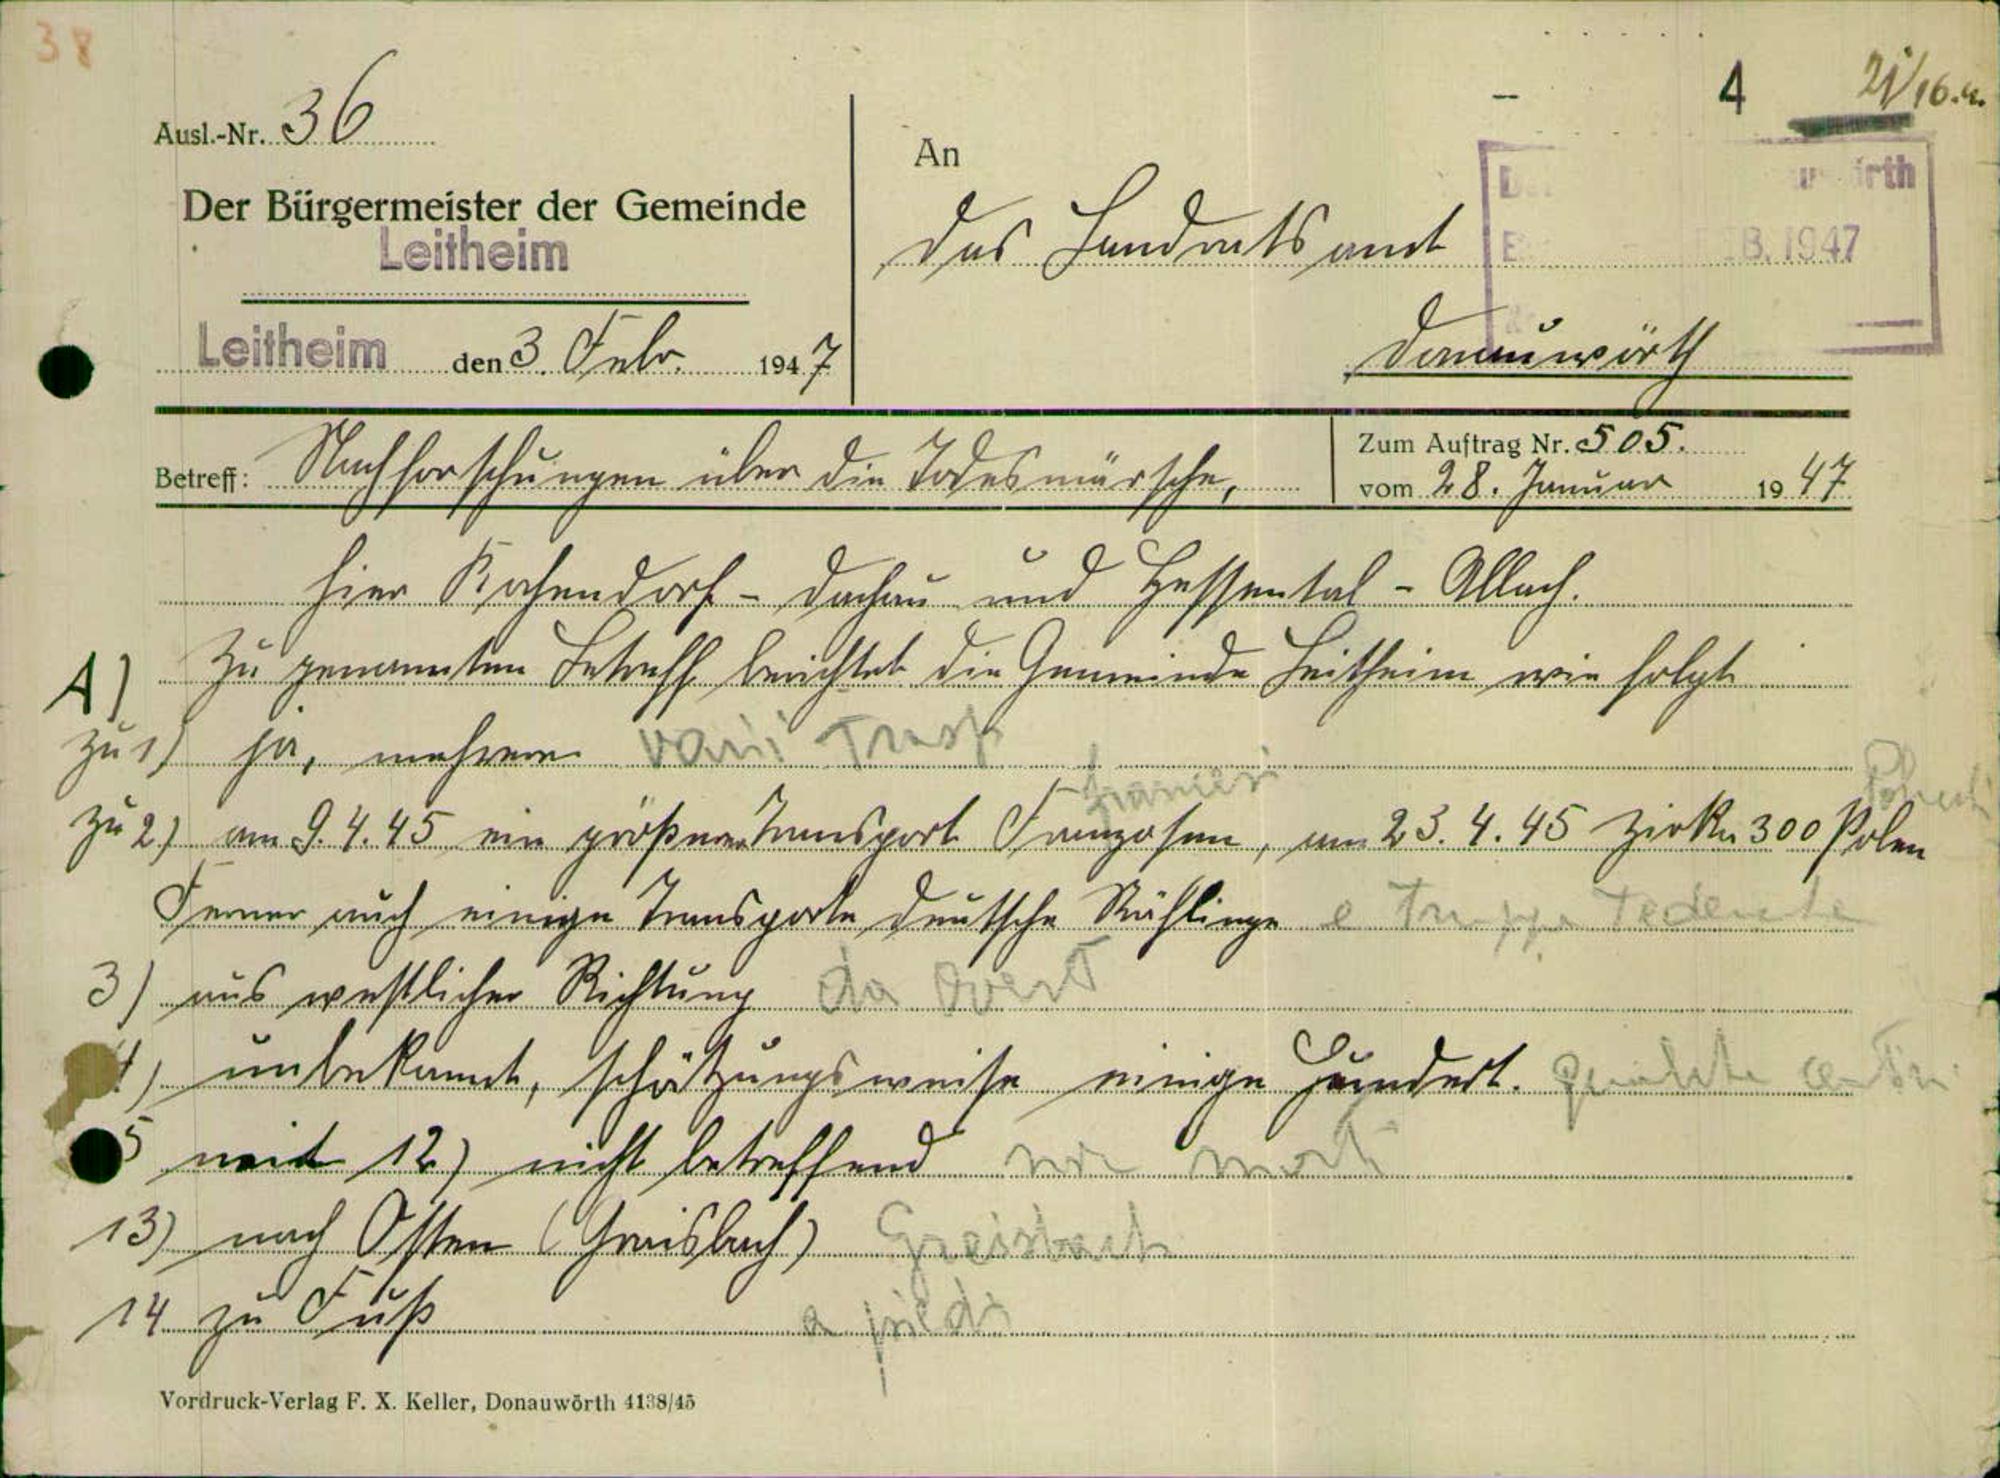 38
4
21/16.4.
Ausl.-Nr. 36
Der Bürgermeister der Gemeinde
Leitheim
Leitheim den 3. Febr. 1947
An
das Landratsamt
Donauwörth
B. 1947
Betreff: Nachforschungen über die Todesmärsche,
Zum Auftrag Nr. 505.
vom 28. Januar 1947
hier Kochendorf - Dachau und Hessental - Allach.
A) Zu genannten Betreff berichtet die Gemeinde Leitheim wie folgt
zu 1) ja, mehrere varii Trasp
francesi
zu 2) am 9.4.45 ein größerer Transport Franzosen, am 23.4.45 zirka 300 Polen
Ferner auch einige Transporte deutsche Häftlinge e
3) aus westlicher Richtung da ovest
4) unbekannt, schätzungsweise einige Hundert.
5 mit 12) nicht betreffend morti
13) nach Osten (Graisbach) Greisbach
14 zu Fuß a piedi
Vordruck-Verlag F. X. Keller, Donauwörth 4138/45